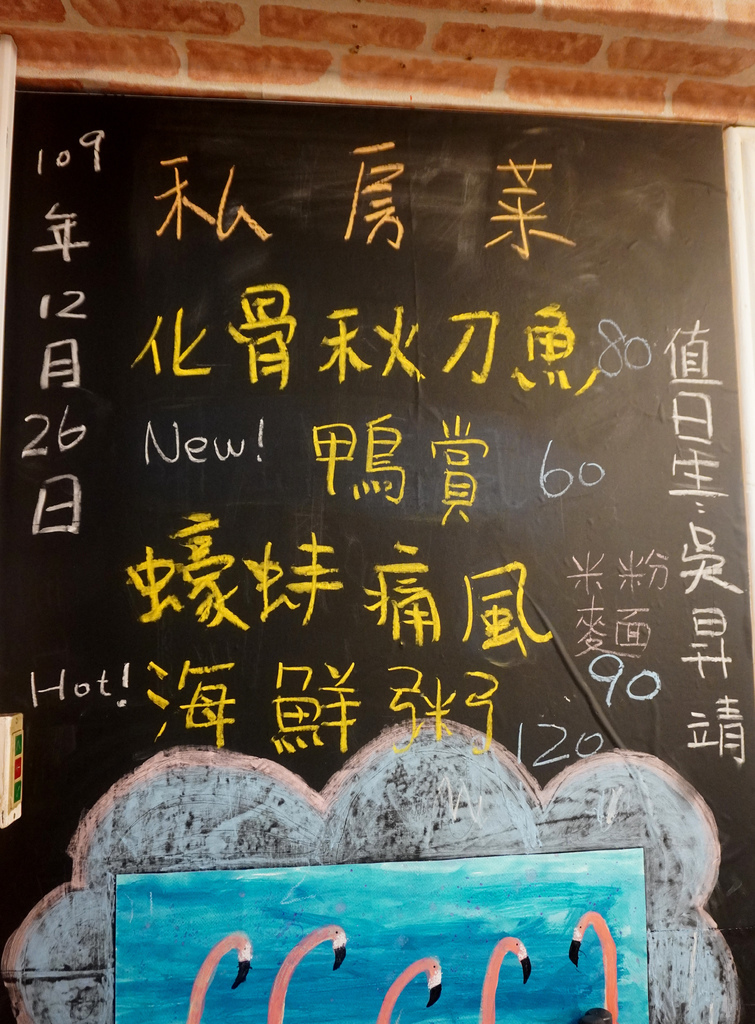 109年12月26日
私房菜
化骨秋刀魚 80
New! 鴨賞 60
蠔蚌痛風 米粉 麵 90
Hot! 海鮮粥 120
值日生:吳昇靖